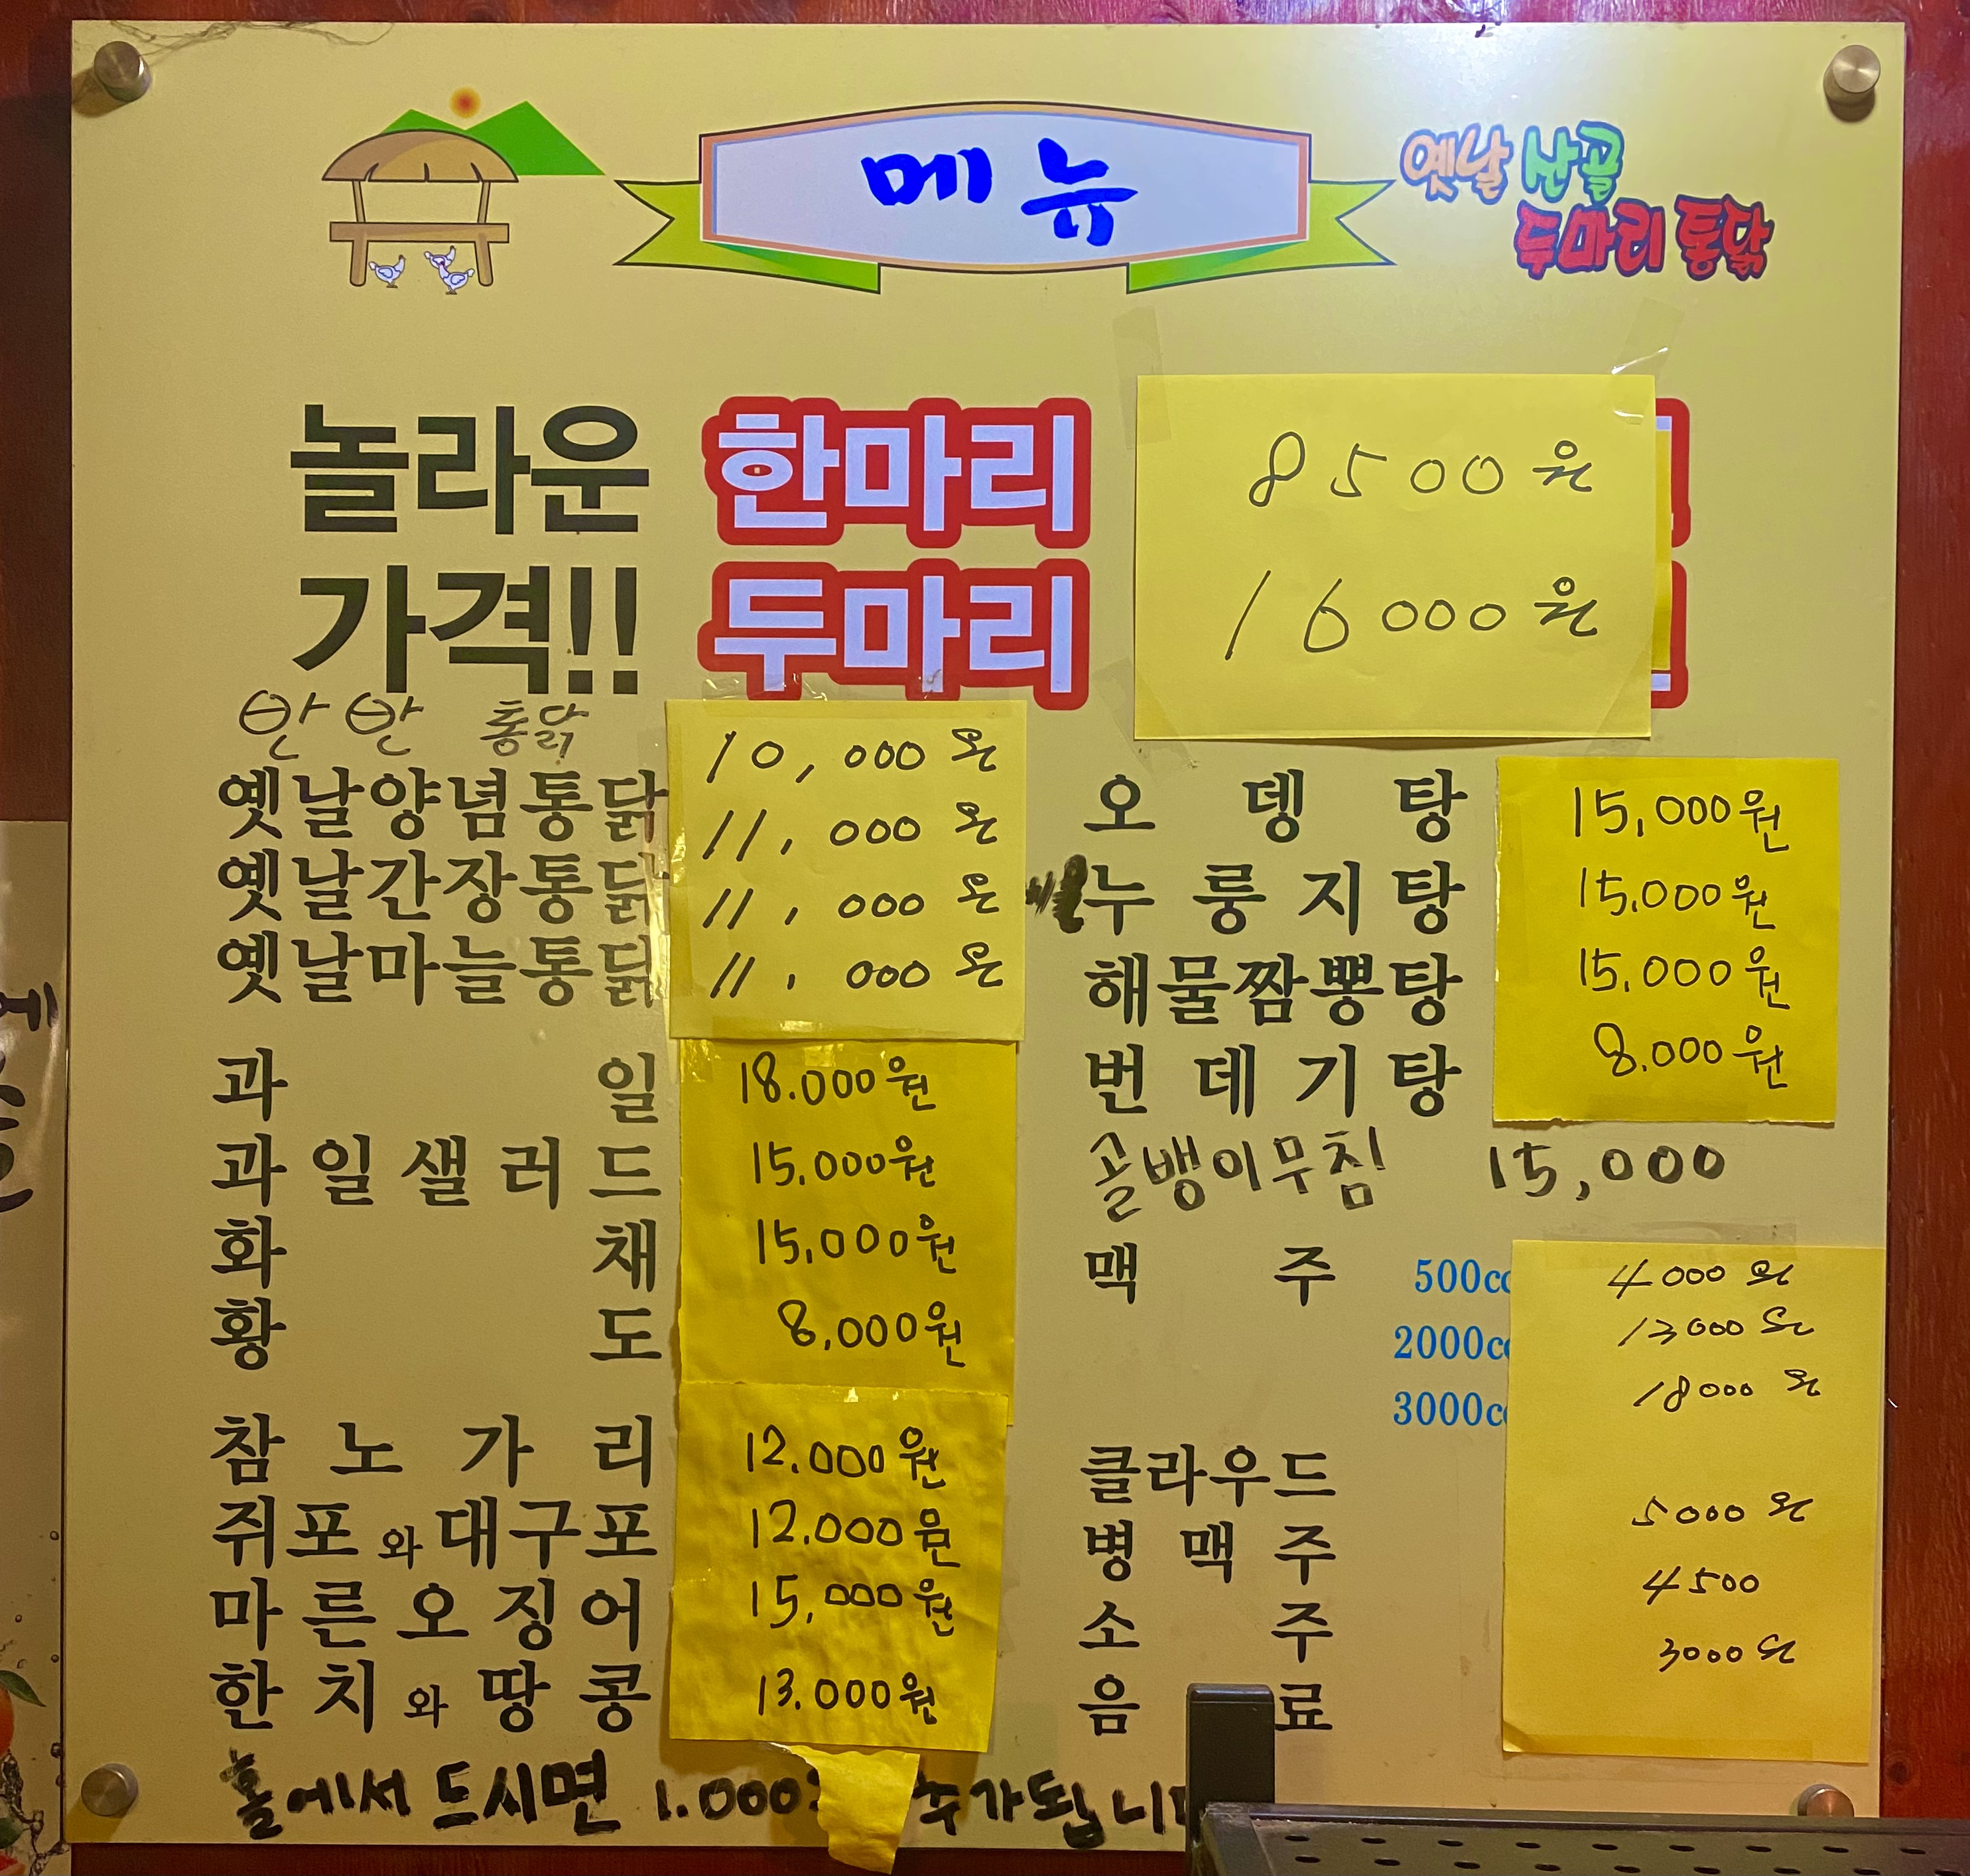 메뉴
옛날 산골
두마리 통닭
놀라운 한마리 8500원
가격!! 두마리 16000원
반반 통닭 10,000원
옛날양념통닭 11,000원
옛날간장통닭 11,000원
옛날마늘통닭 11,000원
과일 18.000원
과일샐러드 15.000원
화채 15,000원
황도 8,000원
참노가리 12.000원
쥐포와대구포 12.000원
마른오징어 15,000원
한치와땅콩 13.000원
오뎅탕 15,000원
누룽지탕 15.000원
해물짬뽕탕 15,000원
번데기탕 8.000원
골뱅이무침 15,000
맥주 500cc 4000원
2000cc 13000원
3000cc 18000원
클라우드
병맥주 5000원
소주 4500
음료 3000원
홀에서 드시면 1.000 추가됩니